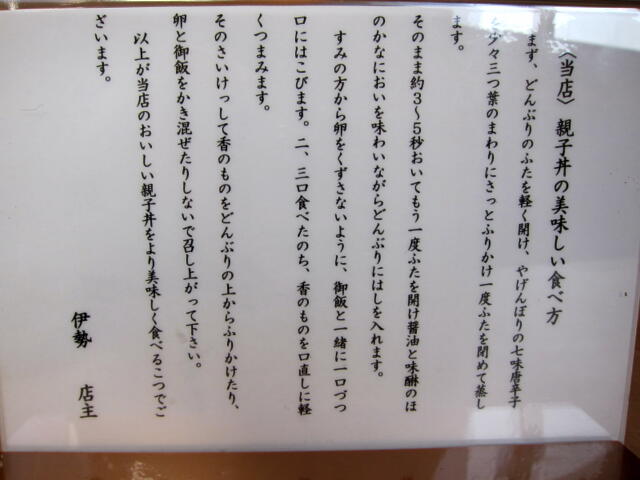 〈当店〉親子丼の美味しい食べ方
まず、どんぶりのふたを軽く開け、やげんぼりの七味唐辛子
を少々三つ葉のまわりにさっとふりかけ一度ふたを閉めて蒸し
ます。
そのまま約3～5秒おいてもう一度ふたを開け醤油と味醂のほ
のかなにおいを味わいながらどんぶりにはしを入れます。
すみの方から卵をくずさないように、御飯と一緒に一口づつ
口にはこびます。二、三口食べたのち、香のものを口直しに軽
くつまみます。
そのさいけっして香のものをどんぶりの上からふりかけたり、
卵と御飯をかき混ぜたりしないで召し上がって下さい。
以上が当店のおいしい親子丼をより美味しく食べるこつでご
ざいます。
伊勢 店主